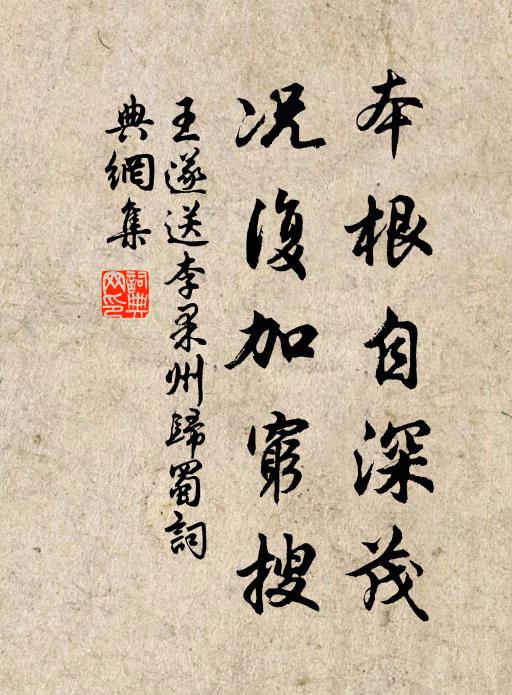 本根自深茂
況復加窮搜
王遂送李果州歸蜀詞
典網集
詞典
网印